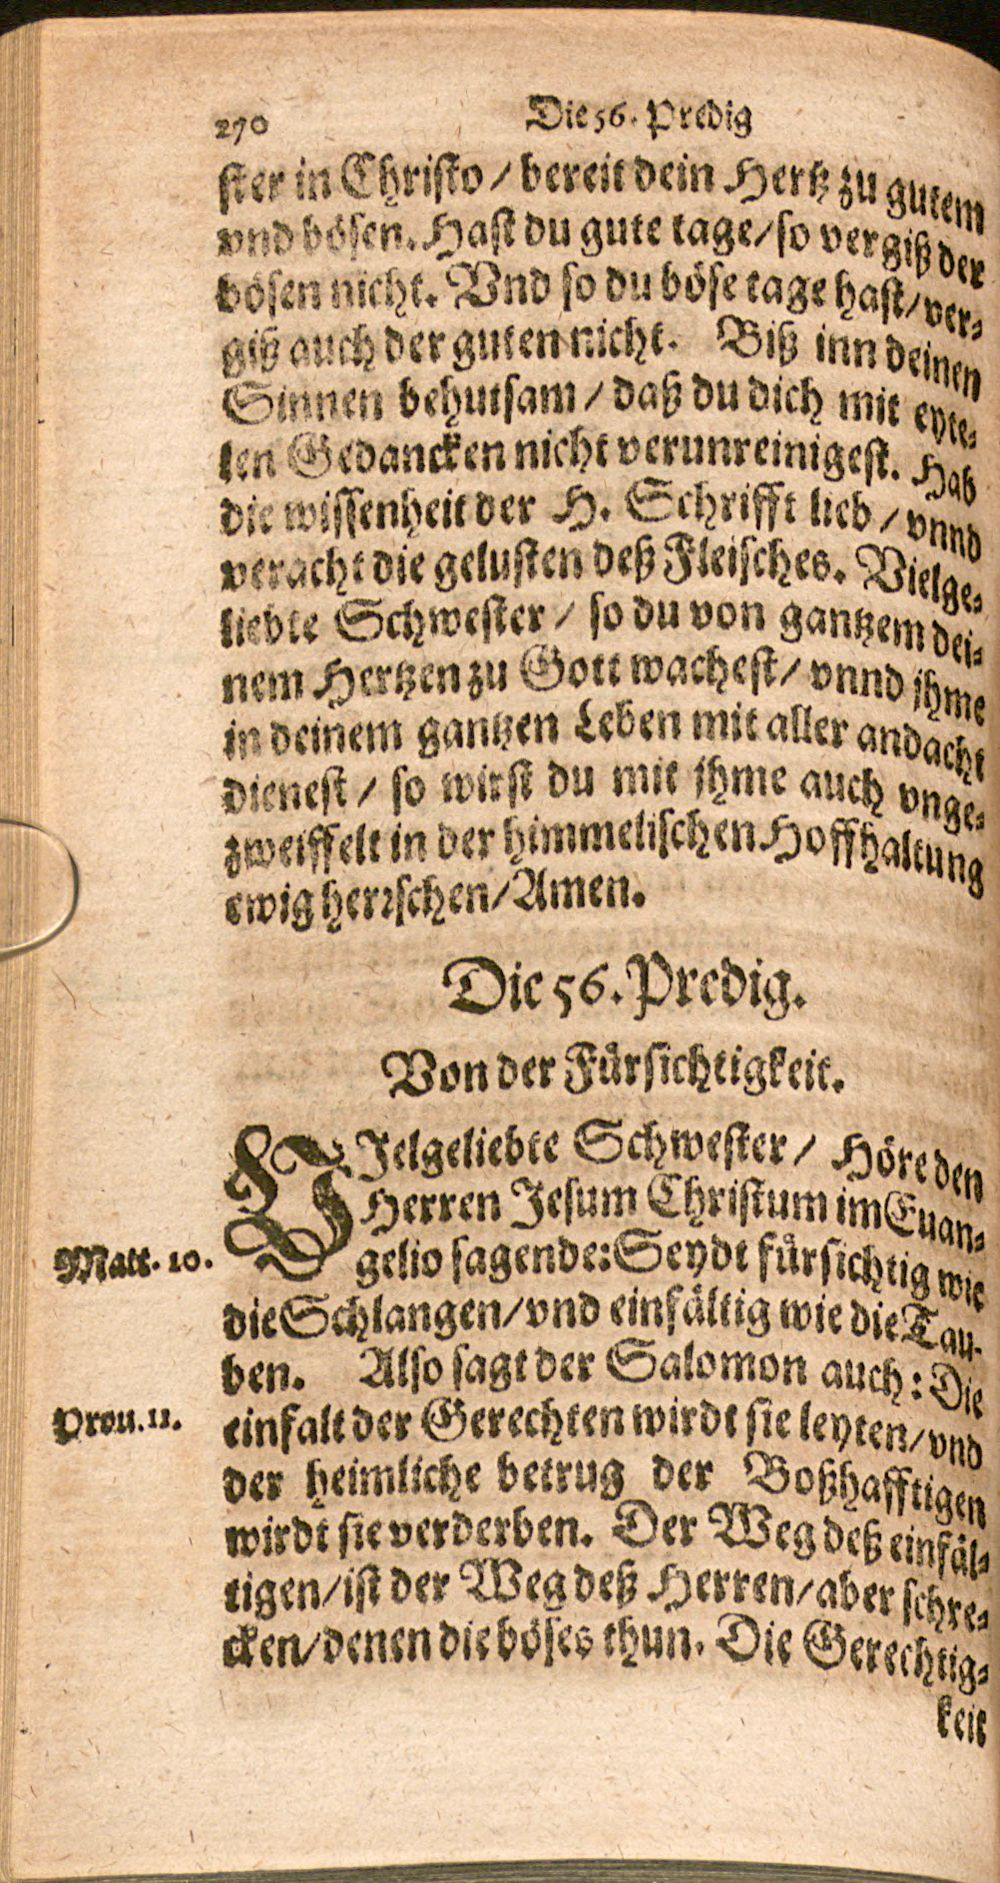 270 Die 56. Predig
ster in Christo / bereit dein Hertz zu gutem
vnd bösen. Hast du gute tage / so vergiß der
bösen nicht. Vnd so du böse tage hast / ver⸗
giß auch der guten nicht. Biß inn deinen
Sinnen behutsam / daß du dich mit eyte⸗
len Gedancken nicht verunreinigest. Hab
die wissenheit der H. Schrifft lieb / vnnd
veracht die gelusten deß Fleisches. Vielge⸗
liebte Schwester / so du von gantzem dei⸗
nem Hertzen zu Gott wachest / vnnd jhme
in deinem gantzen Leben mit aller andacht
dienest / so wirst du mit jhme auch vnge⸗
zweiffelt in der himmelischen Hoffhaltung
ewig herrschen / Amen.
Die 56. Predig.
Von der Fürsichtigkeit.
VJelgeliebte Schwester / Höre den
Herren Jesum Christum im Euan⸗
gelio sagende: Seydt fürsichtig wie
Matt. 10.
die Schlangen / vnd einfältig wie die Tau⸗
ben. Also sagt der Salomon auch: Die
Prou. 11.
einfalt der Gerechten wirdt sie leyten / vnd
der heimliche betrug der Boßhafftigen
wirdt sie verderben. Der Weg deß einfäl⸗
tigen / ist der Weg deß Herren / aber schre⸗
cken / denen die böses thun. Die Gerechtig⸗
keit